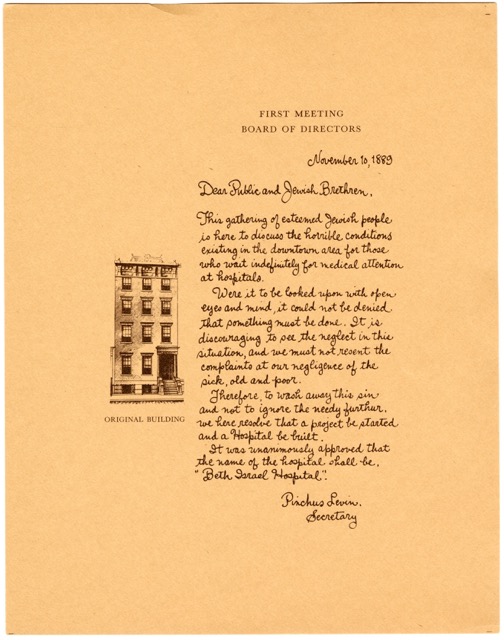 FIRST MEETING
BOARD OF DIRECTORS
November 10, 1889
Dear Public and Jewish Brethren,
This gathering of esteemed Jewish people
is here to discuss the horrible conditions
existing in the downtown area for those
who wait indefinitely for medical attention
at hospitals.
Were it to be looked upon with open
eyes and mind, it could not be denied
that something must be done. It is
discouraging to see the neglect in this
situation, and we must not resent the
complaints at our negligence of the
sick, old and poor.
Therefore, to wash away this sin
and not to ignore the needy furthur,
we here resolve that a project be started
and a Hospital be built.
It was unanimously approved that
the name of the hospital shall be,
"Beth Israel Hospital".
Pinchus Levin,
Secretary
ORIGINAL BUILDING